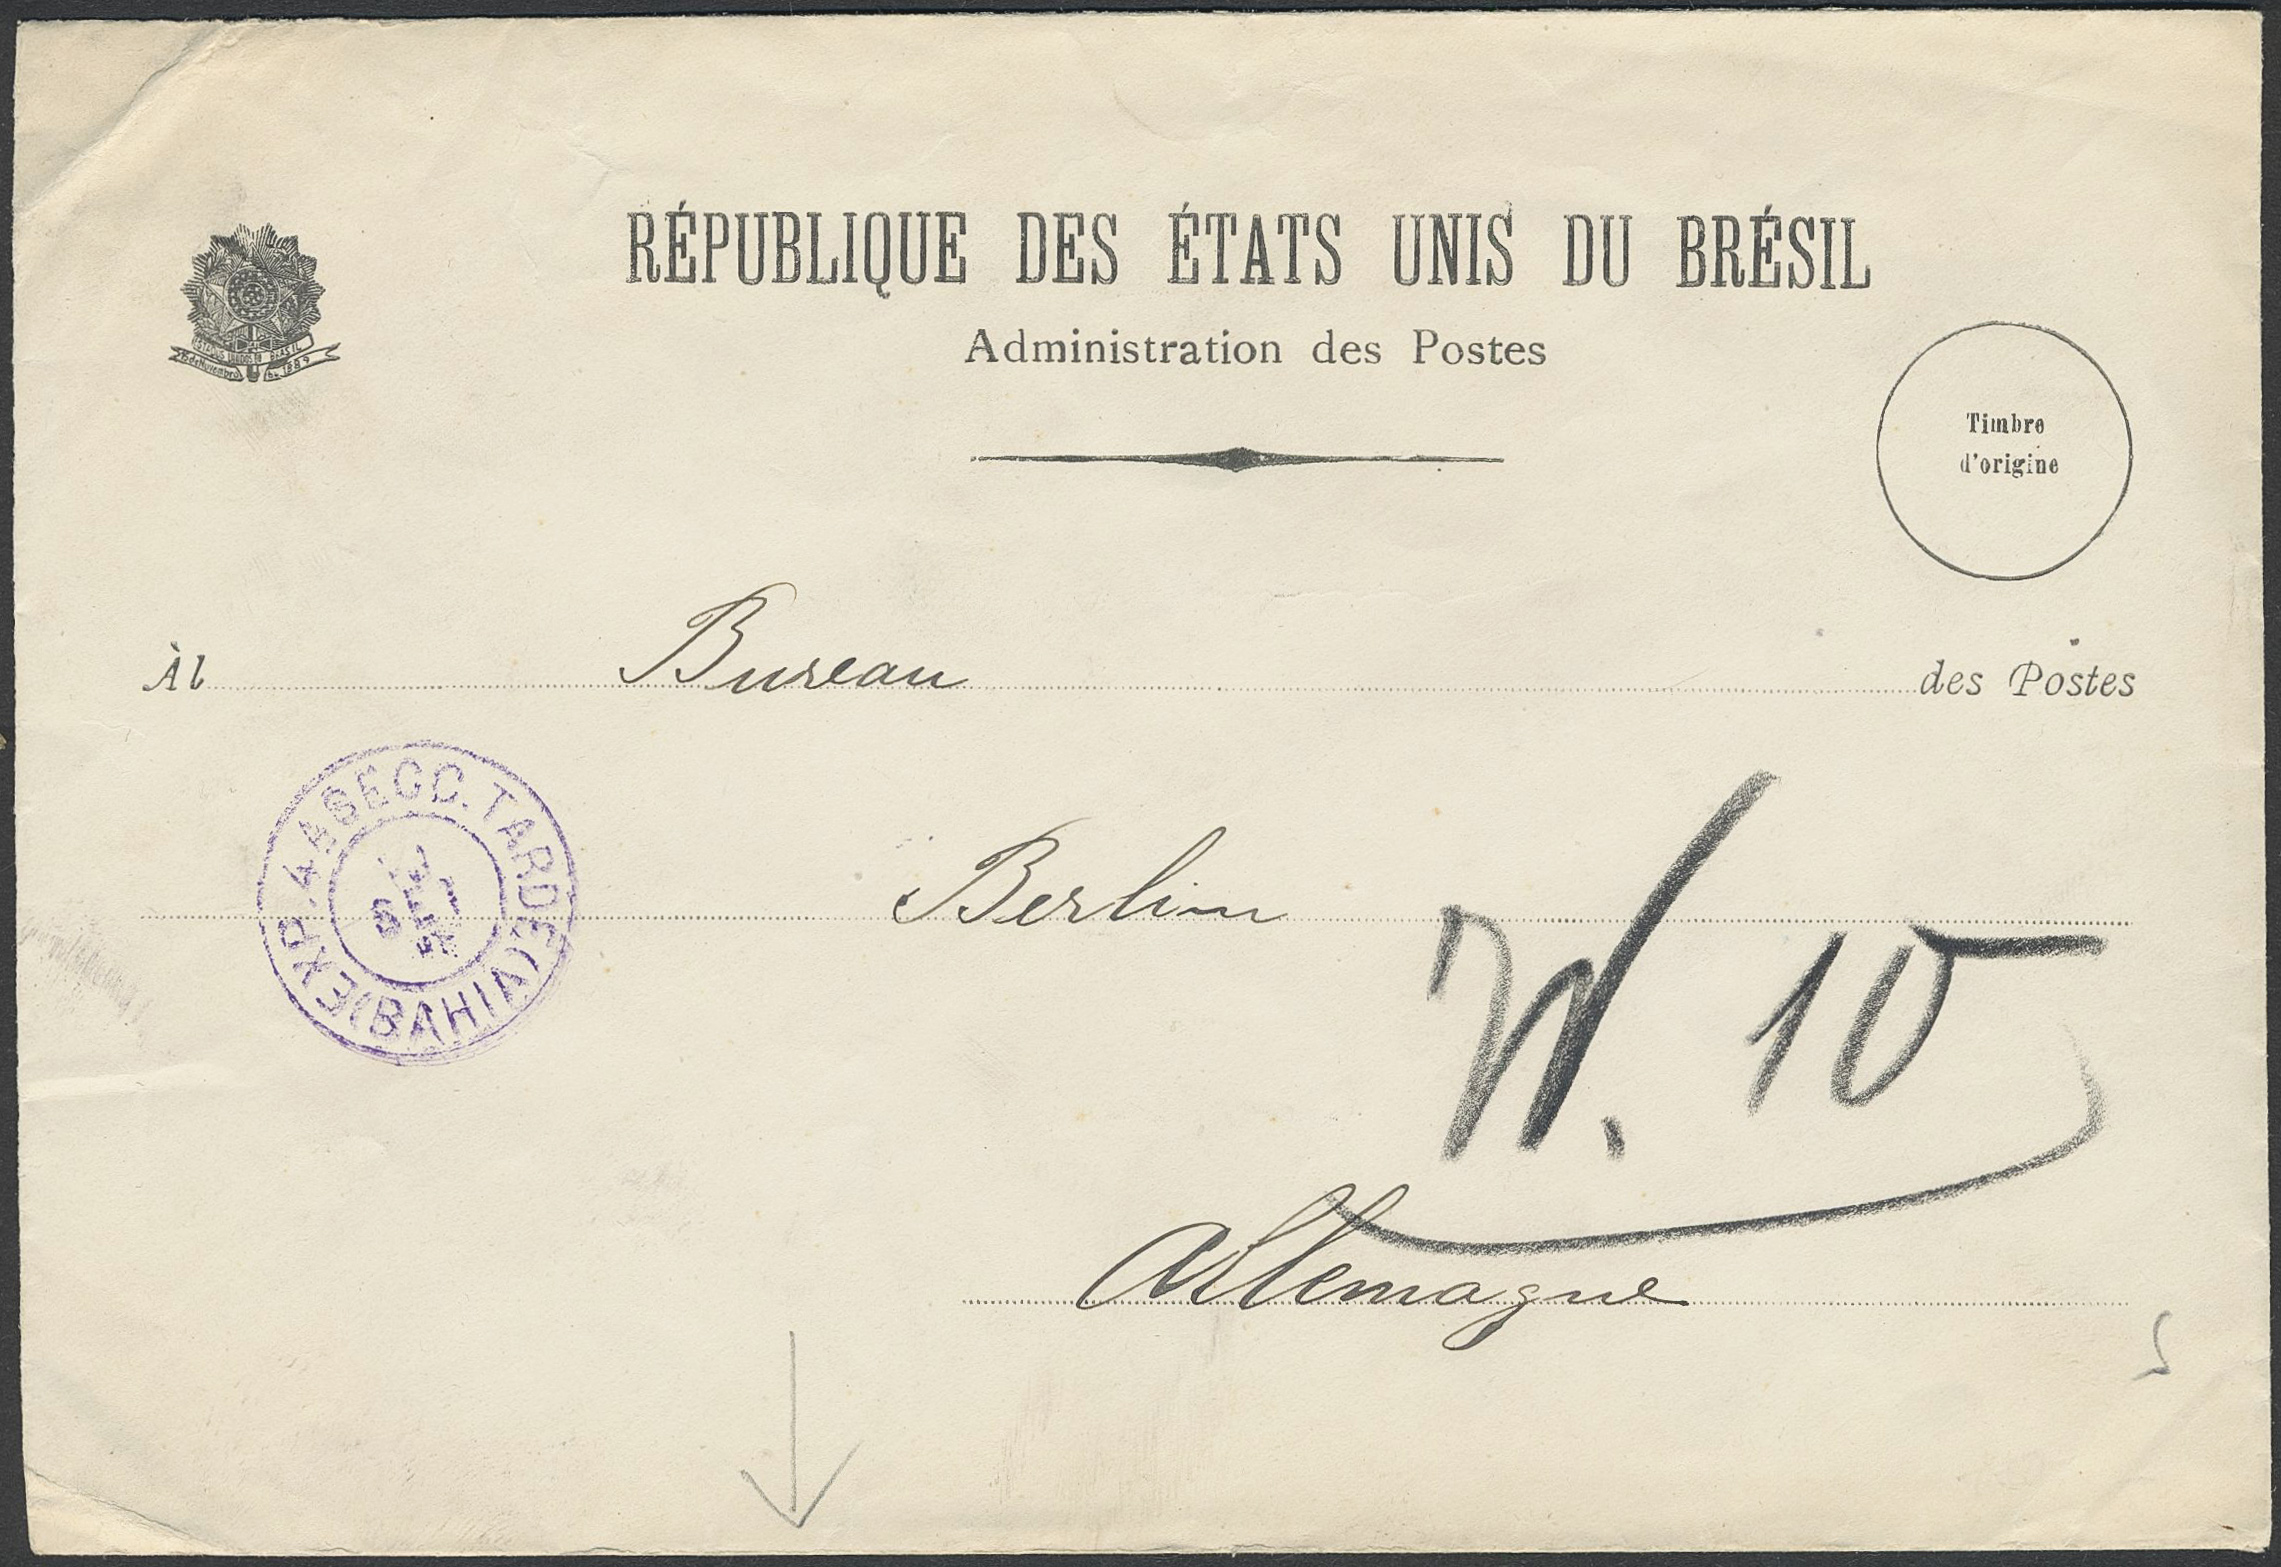 RÉPUBLIQUE DES ÉTATS UNIS DU BRÉSIL
Administration des Postes
ESTADOS UNIDOS DO BRASIL
15 de Novembro de 1889
Timbre
d'origine
Àl Bureau des Postes
EXP. 4A SECC. TARDE (BAHIA)
SET
Berlin
W. 10
Allemagne